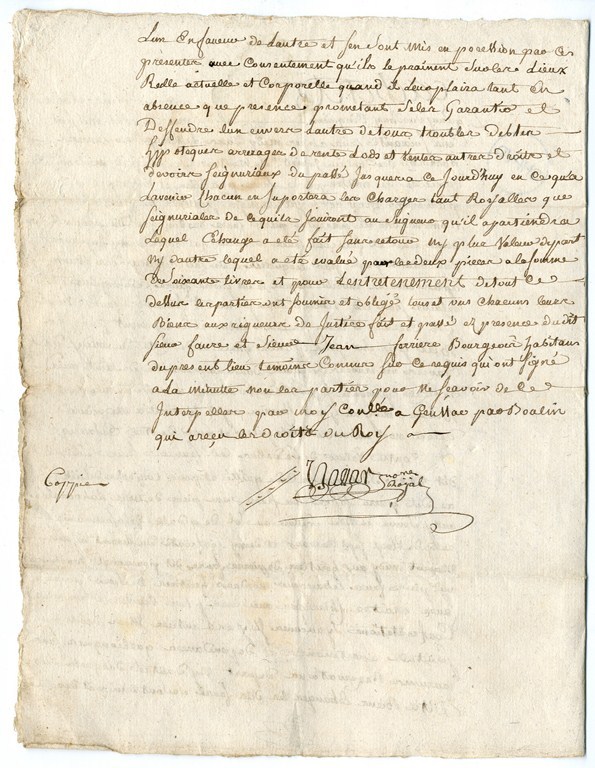 Lun En faveur de Lautre et sen sont mis en pocession par ces
presentes avec Consentement qu'ils le prainent sur les Lieux
Reelle actuelle et Corporelle quand il leur plaira tant En
absence que presence prometant seler Garantir et
Deffendre lun envers Lautre de tous troubles debtes
hypoteques arrerages de rente Lods et ventes autres droits et
devoirs seigneuriaux du passé Jusques a Ce Jourd'huy en ce qu'a
Lavenir Chacun en suportera les Charges tant Royalles que
seigneuriales de Ce quils Joüiront au seigneur qu'il apartiendra
Lequel Echange a eté fait sans retour Ny plus Valeur de part
Ny dautre lequel a eté evalué par les deux pieces a la somme
De soixante livres et pour Lentretenement de tout Ce
dessus les parties ont soumis et obligé tous et uns Chacuns leurs
Biens aux rigueurs de Justice fait et passé ez presence dudit
sieur faure et sieur Jean ferriere Bourgeois habitans
du present lieu temoins Connus sur Ce requis qui ont signé
a la Minute non les parties pour Ne sçavoir de Ce
Interpellés par moy Conllé a Gensac par Boalin
qui a reçu les droits du Roy
Coppie
nore
Royal